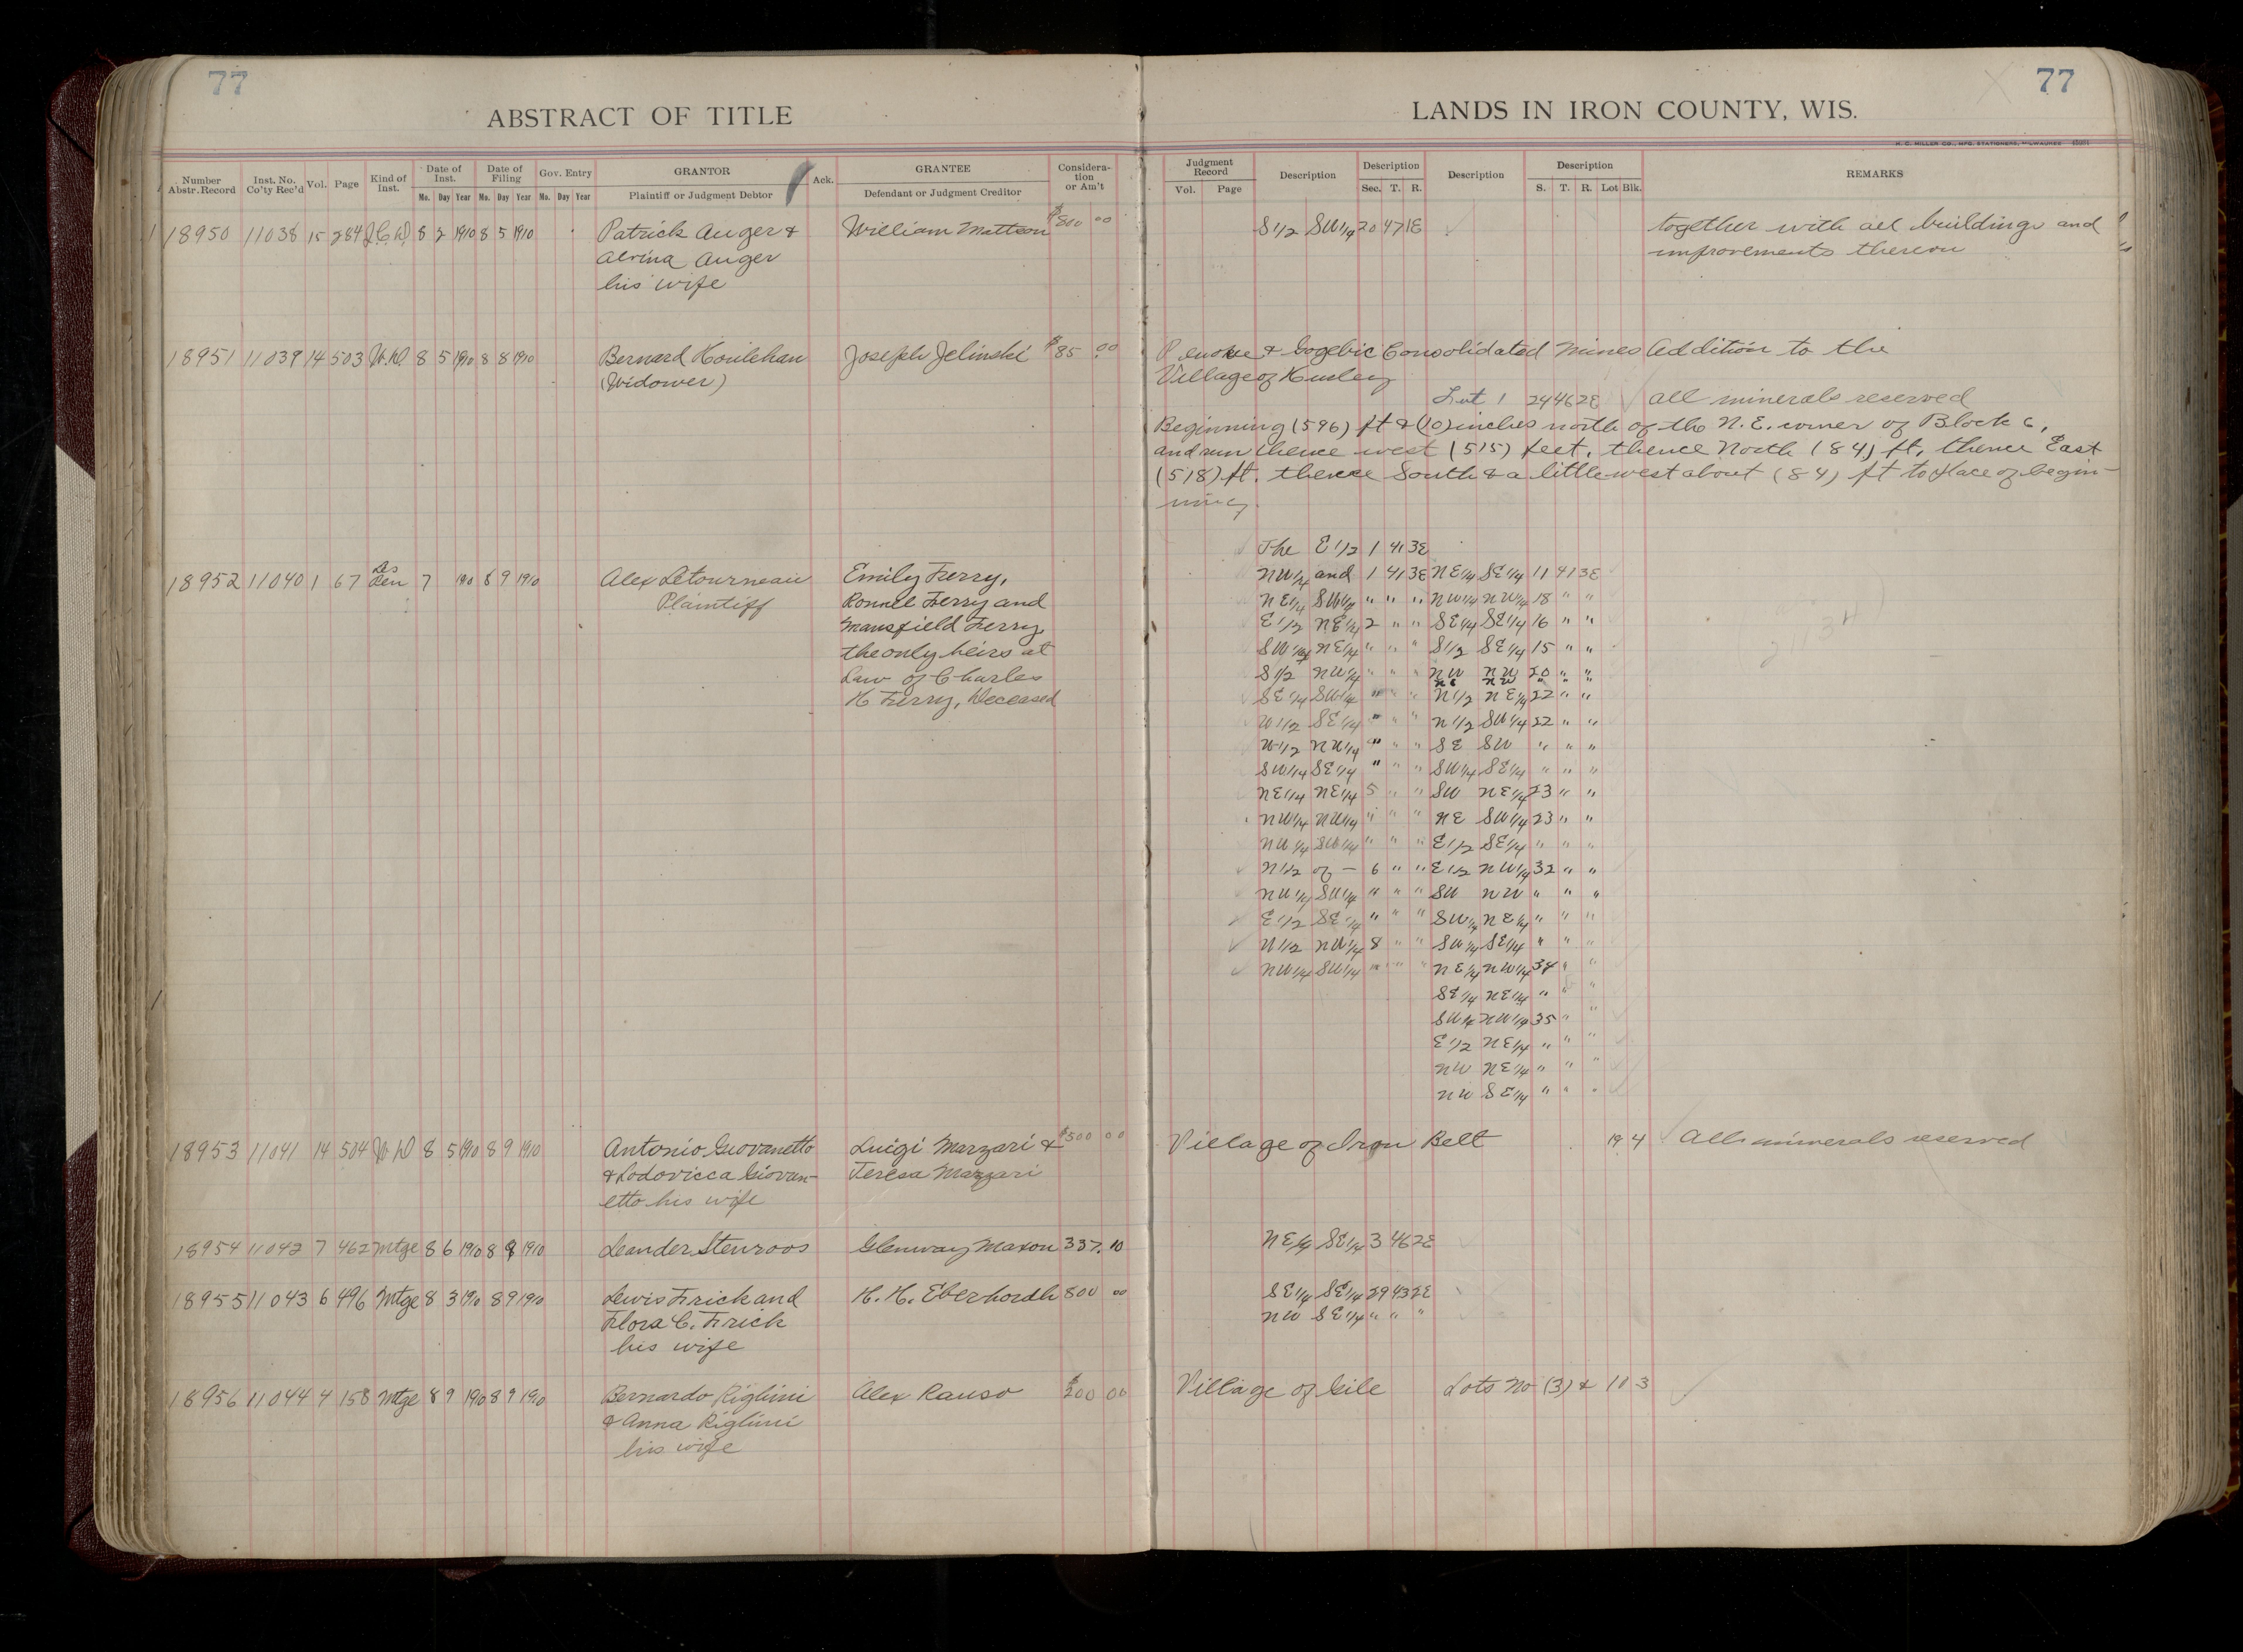 77
77
ABSTRACT OF TITLE
LANDS IN IRON COUNTY, WIS.
H. C. MILLER CO., MFG. STATIONERS, MILWAUKEE
Number Abstr. Record
Inst. No. Co'ty Rec'd
Vol.
Page
Kind of Inst.
Date of Inst.
Mo. Day Year
Date of Filing
Mo. Day Year
Gov. Entry
Mo. Day Year
GRANTOR
Plaintiff or Judgment Debtor
Ack.
GRANTEE
Defendant or Judgment Creditor
Considera-
tion
or Am't
Judgment Record
Vol. Page
Description
Description
Sec. T. R.
Description
Description
S. T. R. Lot Blk.
REMARKS
18950 11038 15 284 Q.C.D. 8 2 1910 8 5 1910 Patrick Auger & William Mattson $800 00 S1/2 SW1/4 20 47 1E together with all buildings and
Alvina Auger improvements thereon
his wife
18951 11039 14 503 W.D. 8 5 1910 8 8 1910 Bernard Houlehan Joseph Jelinski $85 00 Penokee & Gogebic Consolidated Mines Addition to the
(Widower) Village of Hurley
Lot 1 24 46 2E all minerals reserved
Beginning (596) ft & (10) inches north of the N.E. corner of Block 6,
and run thence west (515) feet, thence North (84) ft, thence East
(518) ft. thence South & a little west about (84) ft to place of begin-
ning
The E1/2 1 41 3E
18952 11040 1 67 Lis Pen 7 1910 8 9 1910 Alex Letourneau Emily Ferry, NW1/4 and 1 41 3E NE1/4 SE1/4 11 41 3E
Plaintiff Ronnel Ferry and NE1/4 SW1/4 " " " NW1/4 NW1/4 18 " "
Mansfield Ferry, E1/2 NE1/4 2 " " SE1/4 SE1/4 16 " "
the only heirs at SW1/4 NE1/4 " " " S1/2 SE1/4 15 " "
Law of Charles S1/2 NW1/4 " " " NW NW 20 " "
NE NW " " "
H Ferry, Deceased SE1/4 SW1/4 " " " N1/2 NE1/4 22 " "
W1/2 SE1/4 " " " N1/2 SW1/4 22 " "
W1/2 NW1/4 " " " SE SW " " "
SW1/4 SE1/4 " " " SW1/4 SE1/4 " " "
NE1/4 NE1/4 5 " " SW NE1/4 23 " "
NW1/4 NW1/4 " " " NE SW1/4 23 " "
NW1/4 SW1/4 " " " E1/2 SE1/4 " " "
N1/2 of — 6 " " E1/2 NW1/4 32 " "
NW1/4 SW1/4 " " " SW NW " " "
E1/2 SE1/4 " " " SW1/4 NE1/4 " " "
W1/2 NW1/4 8 " " SW1/4 SE1/4 " " "
NW1/4 SW1/4 " " " NE1/4 NW1/4 34 " "
SE1/4 NE1/4 " " "
SW1/4 NW1/4 35 " "
E1/2 NE1/4 " " "
NW NE1/4 " " "
NW SE1/4 " " "
18953 11041 14 504 W D 8 5 1910 8 9 1910 Antonio Giovanetto Luigi Marzari & $500 00 Village of Iron Belt 19 4 All minerals reserved
& Lodovicca Giovan- Teresa Marzari
etto his wife
18954 11042 7 462 Mtge 8 6 1910 8 9 1910 Leander Stenroos Glenway Maxon 337. 10 NE1/4 SE1/4 3 46 2E
18955 11043 6 496 Mtge 8 3 1910 8 9 1910 Lewis Frick and H. H. Eberhordh 800 00 SE1/4 SE1/4 29 43 2E
Flora C. Frick NW SE1/4 " " "
his wife
18956 11044 4 158 Mtge 8 9 1910 8 9 1910 Bernardo Riglini Alex Rauso $200 00 Village of Gile Lots No (3) & 10 3
& Anna Riglini
his wife